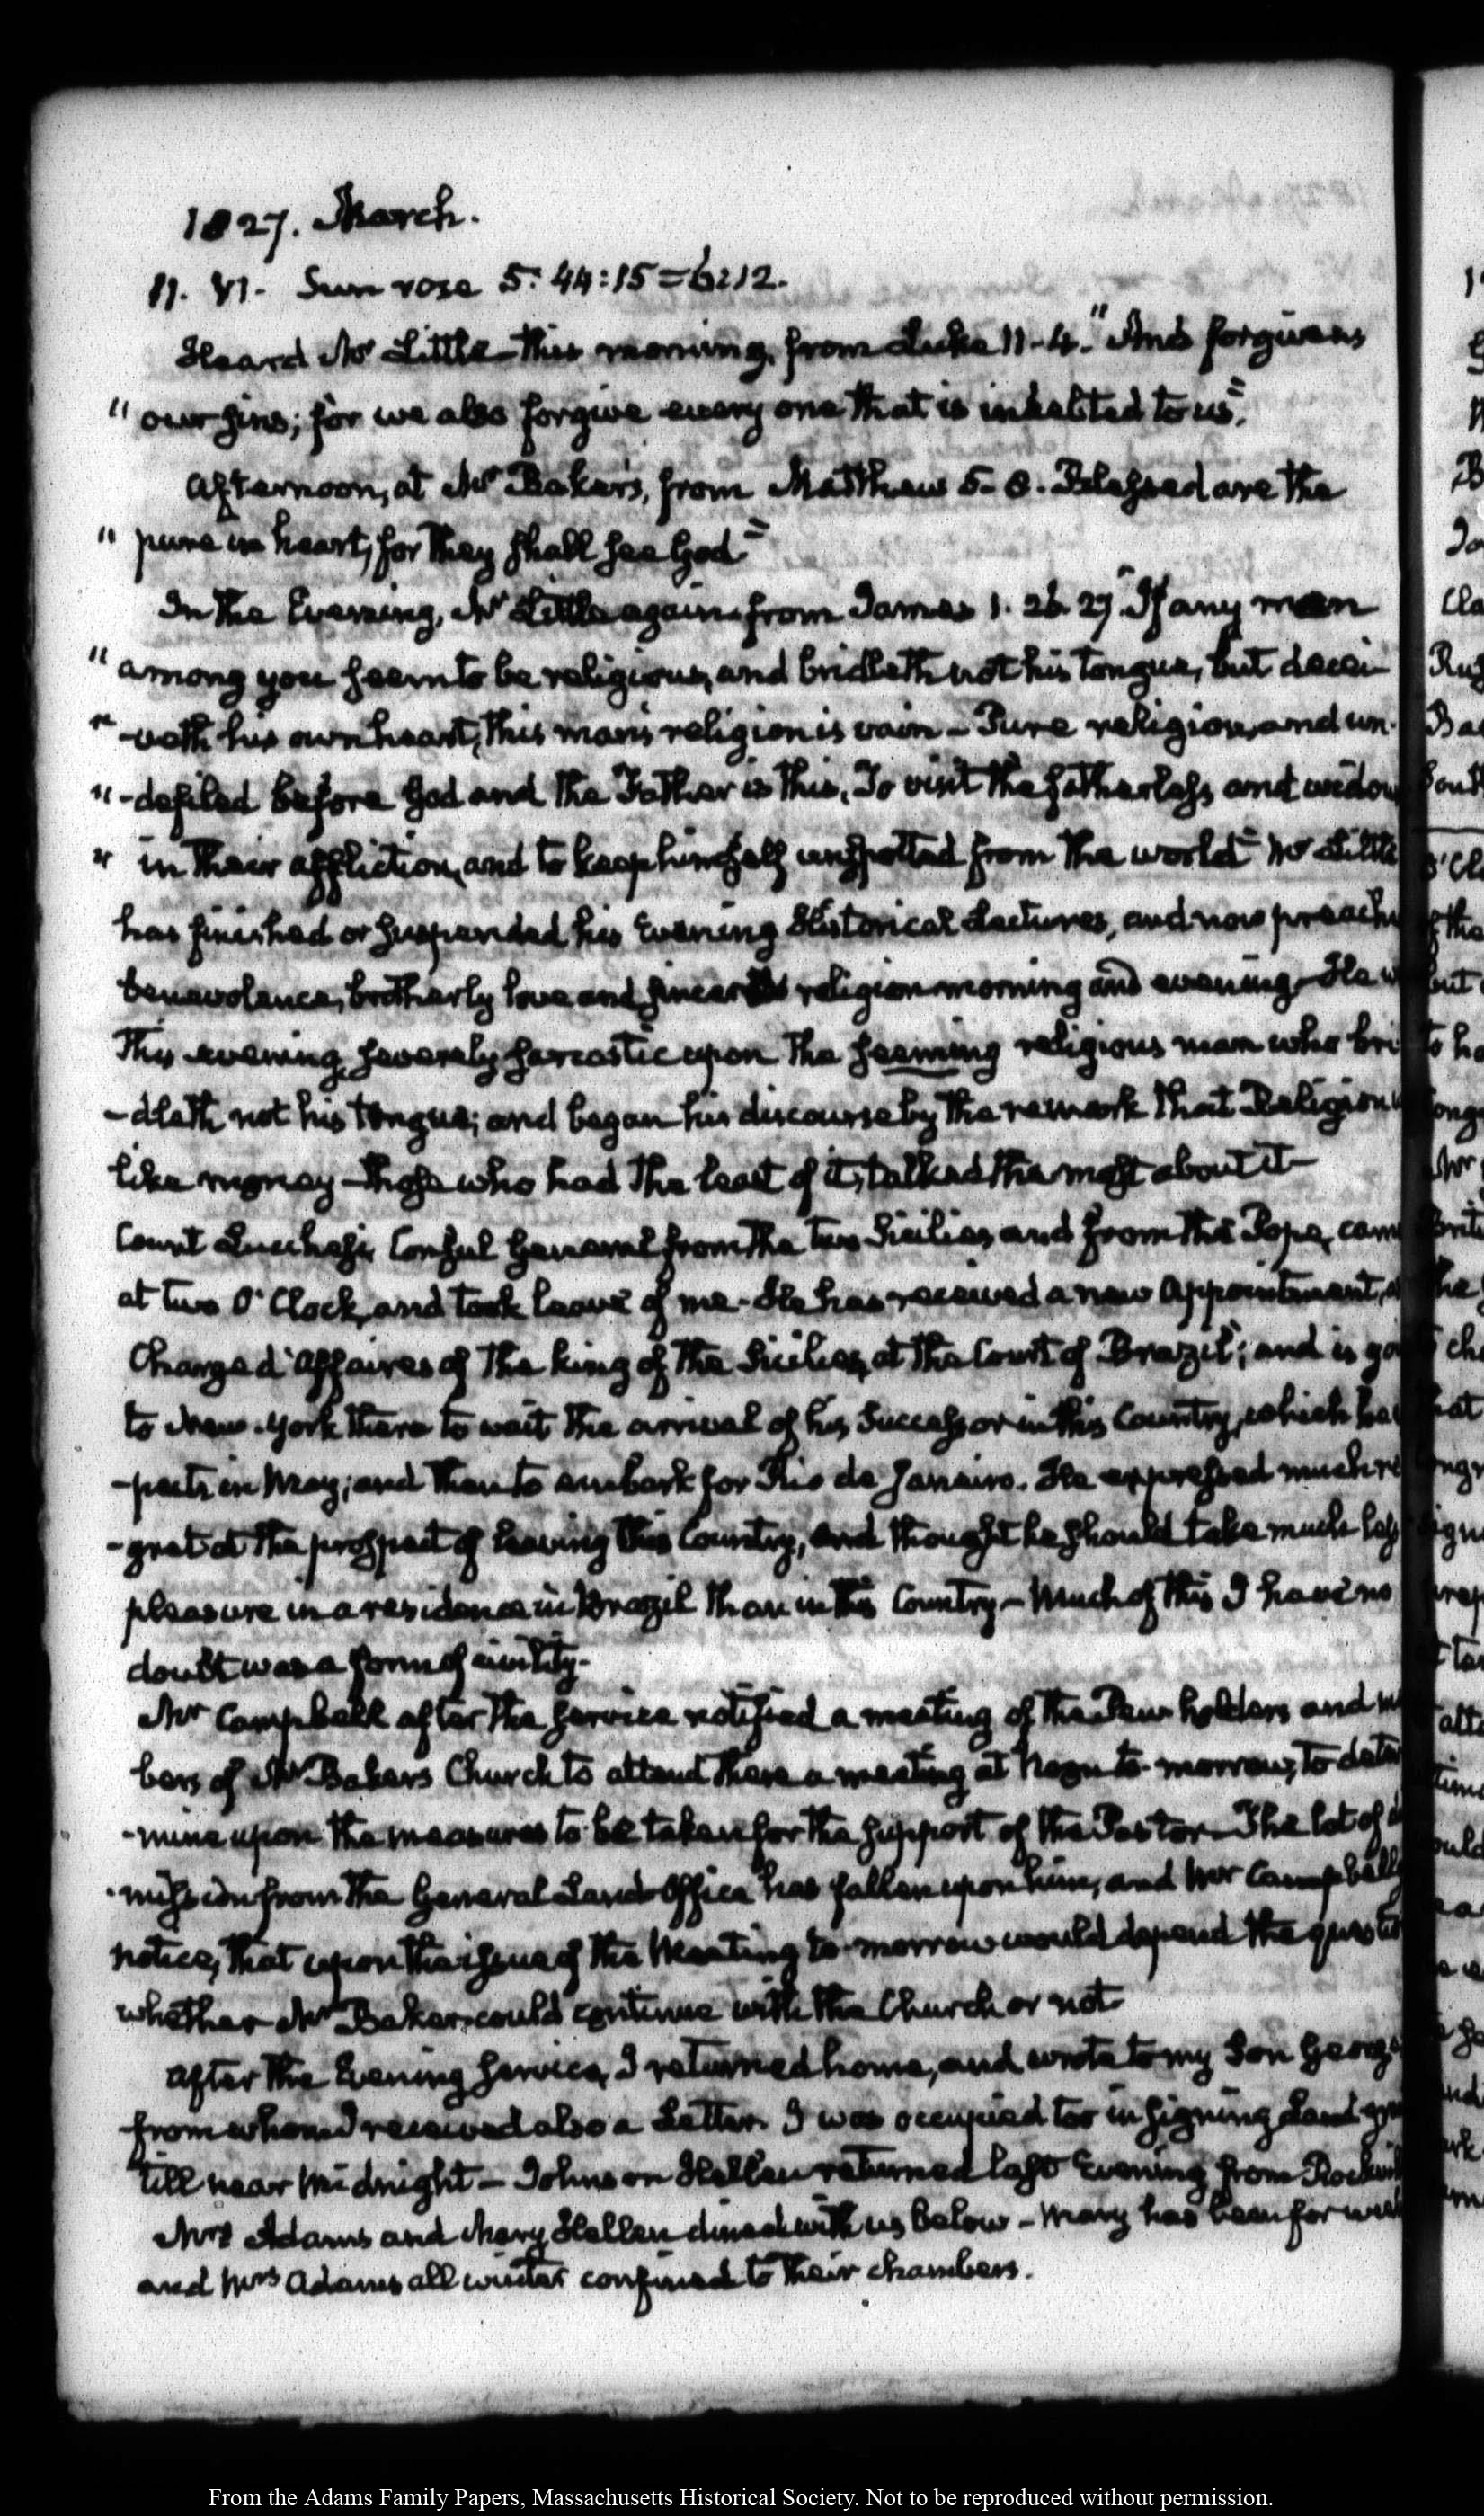 1827. March.
11. VI. Sun rose 5:44:15=6:12.
Heard Mr Little this morning, from Luke 11-4. "And forgive us
" our sins; for we also forgive every one that is indebted to us".
Afternoon, at Mr Baker's, from Matthew 5-8. Blessed are the
" pure in heart, for they shall see God"
In the Evening, Mr Little again from James 1. 26. 27. "If any man
" among you seem to be religious, and bridleth not his tongue, but decei-
" -veth his own heart, this man's religion is vain – Pure religion, and un-
" -defiled before God and the Father is this, To visit the fatherless and widow
" in their affliction, and to keep himself unspotted from the world" Mr Little
has finished or suspended his Evening Historical Lectures, and now preach
benevolence, brotherly love and religion morning and evening. He w
this evening, severely sarcastic upon the seeming religious man who bri
-dleth not his tongue; and began his discourse by the remark that Religion
like money – those who had the least of it, talked the most about it –
Count Lucchesi, Consul General from the two Sicilies, and from the Pope, came
at two O'Clock, and took leave of me. He has received a new Appointment, a
Charge d'Affaires of the king of the Sicilies, at the Court of Brazil; and is go
to New-York there to wait the arrival of his Successor in this Country, which he
-pects in May; and then to embark for Rio de Janeiro. He expressed much re
-gret at the prospect of leaving this Country, and thought he should take much less
pleasure in a residence in Brazil than in this Country – Much of this I have no
doubt was a form of civility.
Mr Campbell after the service notified a meeting of the Pew-holders and m
bers of Mr Bakers Church to attend there a meeting at Noon to-morrow, to deter
-mine upon the measures to be taken for the support of the Pastor – The lot of
-mission from the General Land Office has fallen upon him, and Mr Campbell
notice, that upon the issue of the Meeting to-morrow would depend the questi
whether Mr Baker could continue with the Church or not.
After the Evening service, I returned home, and wrote to my Son George
from whom I received also a Letter. I was occupied too in signing Land gra
till near Midnight – Johnson Hellen returned last Evening from Rockvil
Mrs Adams and Mary Hellen dined with us below – Mary has been for
and Mrs Adams all winter confined to their chambers.
From the Adams Family Papers, Massachusetts Historical Society. Not to be reproduced without permission.